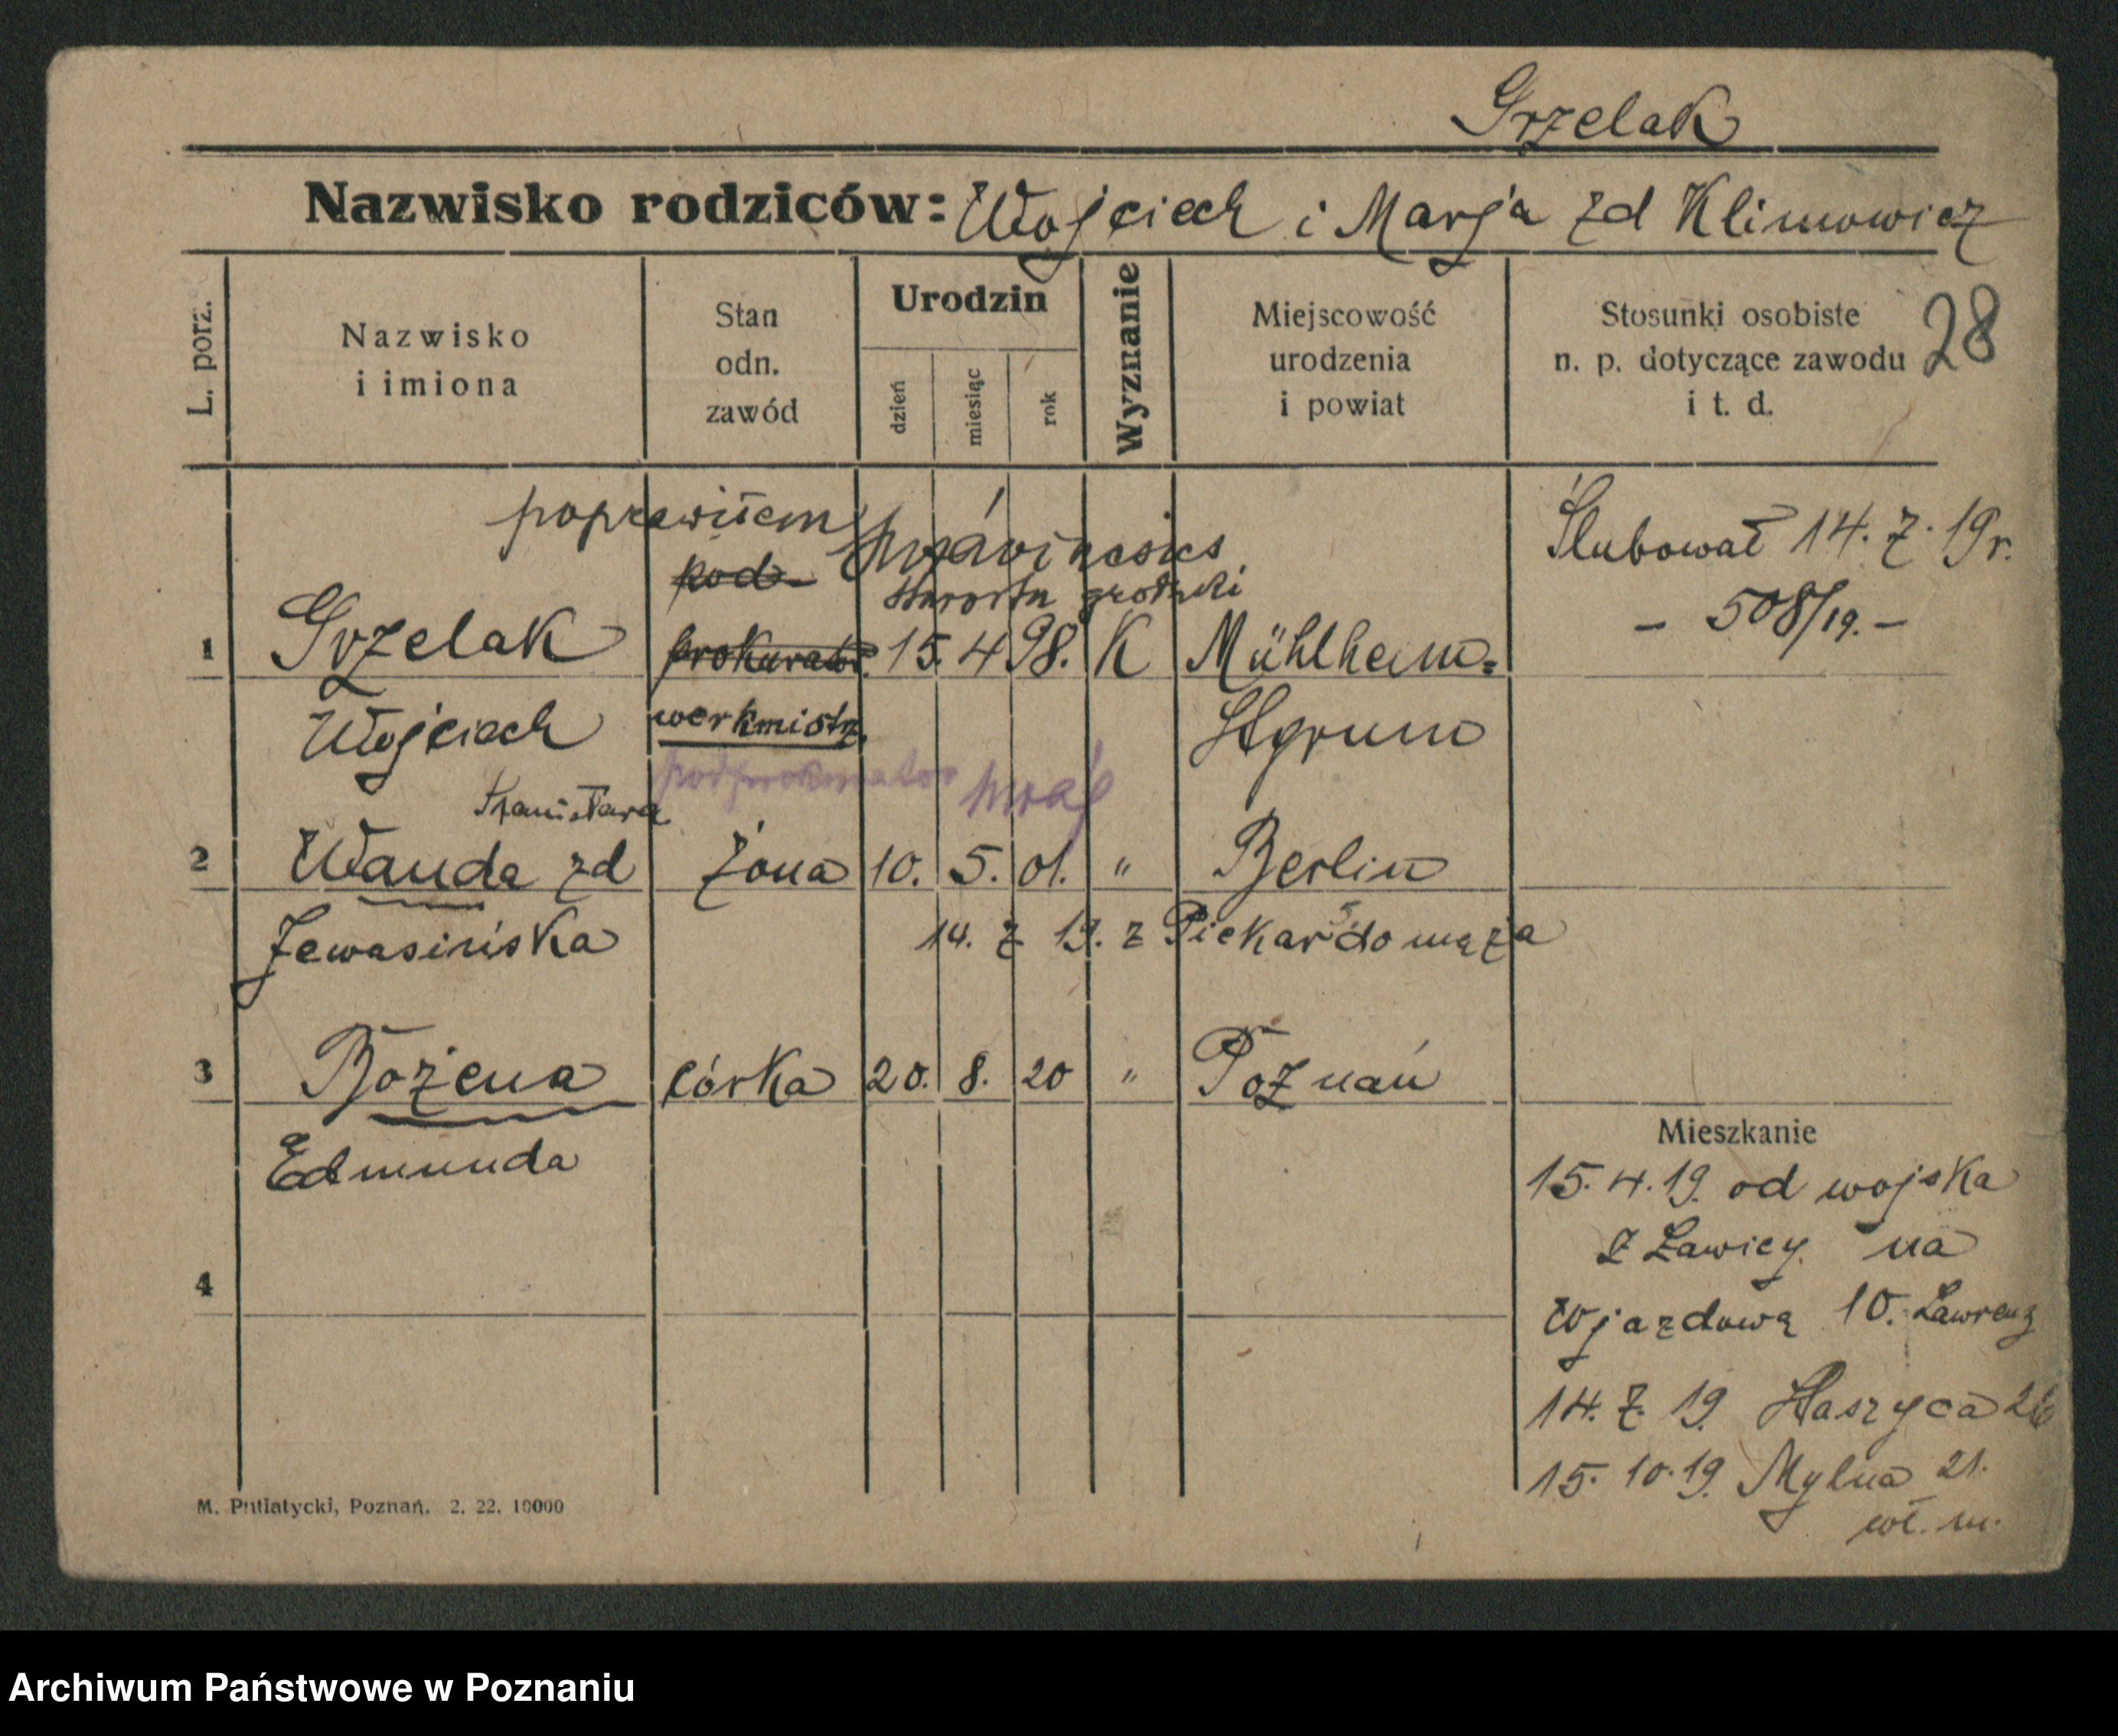 Grzelak
Nazwisko rodziców: Wojciech i Marja zd Klimowicz
L. porz.
Nazwisko
i imiona
Stan
odn.
zawód
Urodzin
dzień
miesiąc
rok
Wyznanie
Miejscowość
urodzenia
i powiat
Stosunki osobiste
n. p. dotyczące zawodu
i t. d.
28
poprawiłem
pod-
starosta grodzki
Ślubował 14. 7. 19 r.
- 508/19. -
1 Grzelak prokurator 15. 4 98. K Mühlheim-
Wojciech werkmistrz. Styrum
podprokurator
Stanisława
2 Wanda zd żona 10. 5. 01. " Berlin
Jewasińska 14. 7. 19. z Piekar 5 do męża
3 Bożena córka 20. 8. 20 " Poznań
Edmunda
Mieszkanie
15. 4. 19. od wojska
z Ławicy na
Wjazdową 10. Lawrenz
4
14. 7. 19 Staszyca 26
15. 10. 19. Mylna 21.
wł. m.
M. Putiatycki, Poznań. 2. 22. 10000
Archiwum Państwowe w Poznaniu